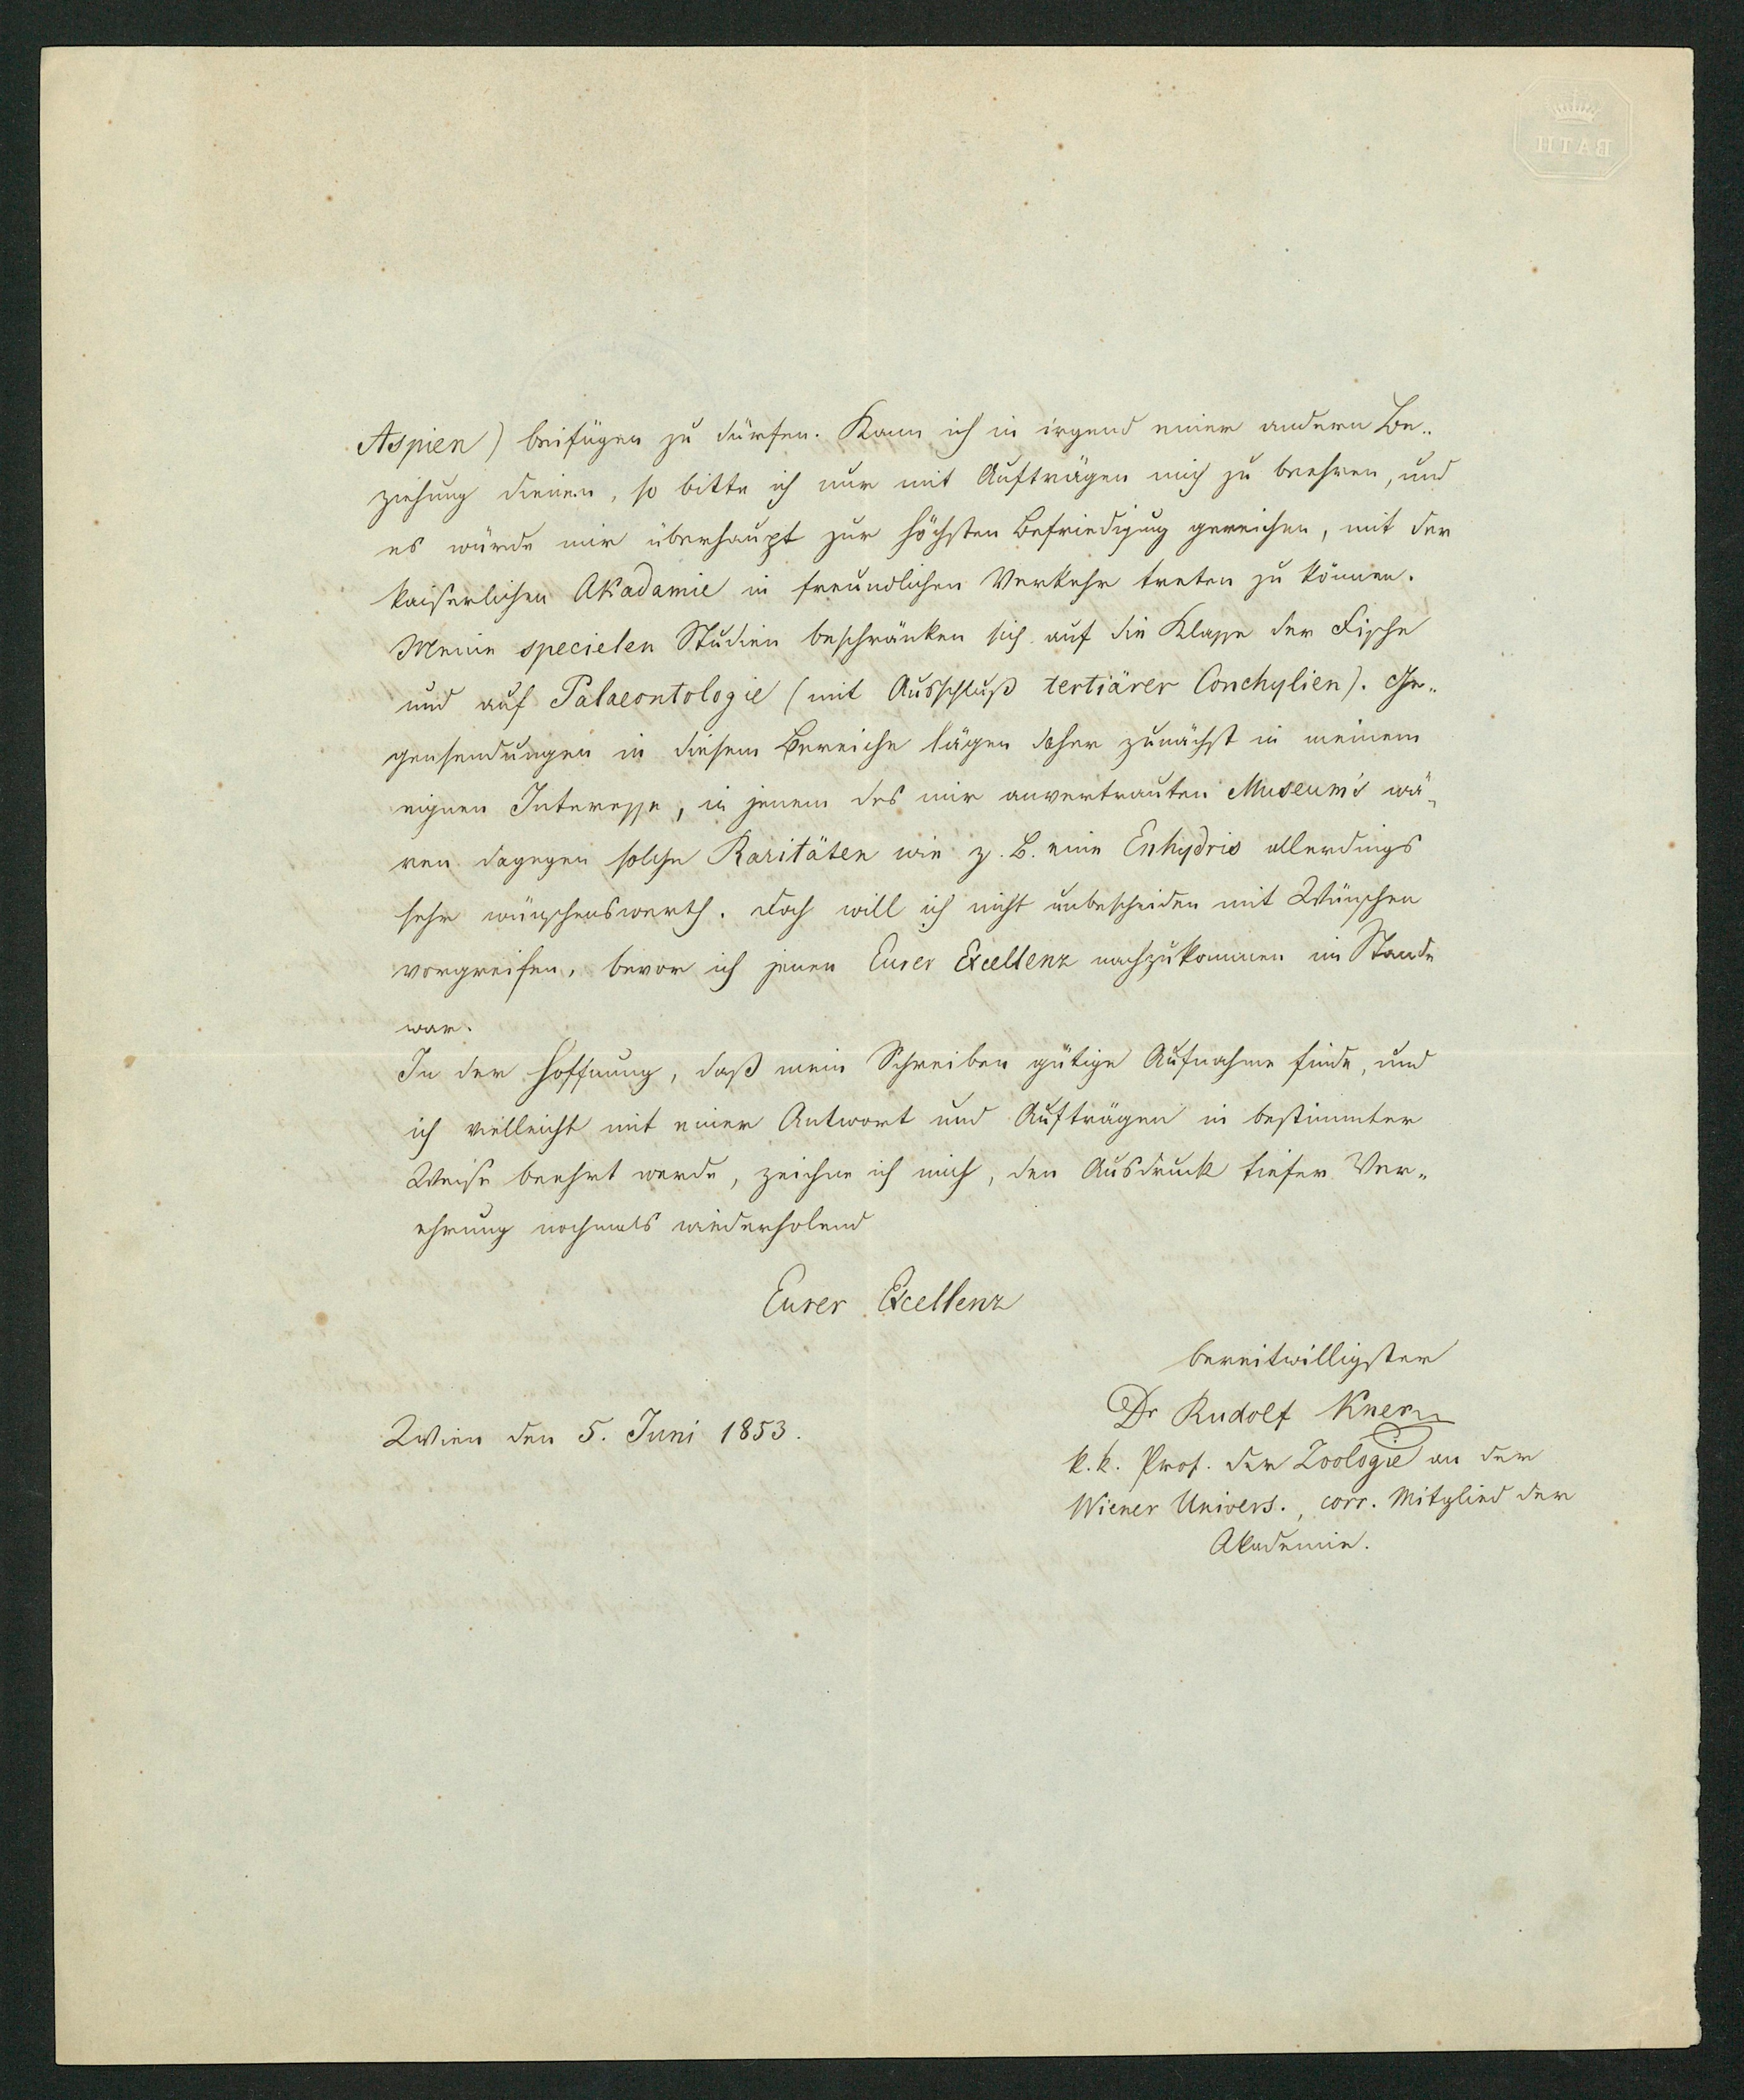 BATH
Aspien) beifügen zu dürfen. Kann ich in irgend einer andern Be-
ziehung dienen, so bitte ich nur mit Aufträgen mich zu beehren, und
es würde mir überhaupt zur höchsten Befriedigung gereichen, mit der
kaiserlichen Akadamie in freundlichen Verkehr treten zu können.
Meine specielen Studien beschränken sich auf die Klasse der Fische
und auf Palaeontologie (mit Ausschluß tertiärer Conchylien). Ge-
gensendungen in diesem Bereiche lägen daher zunächst in meinem
eignen Interesse, in jenem des mir anvertrauten Museum's wä-
ren dagegen solche Raritäten wie z. B. eine Enhydris allerdings
sehr wünschenswerth. Doch will ich nicht unbescheiden mit Wünschen
vorgreifen, bevor ich jenen Eurer Excellenz nachzukommen im Stande
war.
In der Hoffnung, daß mein Schreiben gütige Aufnahme finde, und
ich vielleicht mit einer Antwort und Aufträgen in bestimmter
Weise beehrt werde, zeichne ich mich, den Ausdruck tiefer Ver-
ehrung nochmals wiederholend
Eurer Excellenz
bereitwilligster
Dr Rudolf Kner
Wien den 5. Juni 1853.
k. k. Prof. der Zoologie an der
Wiener Univers., corr. Mitglied der
Akademie.